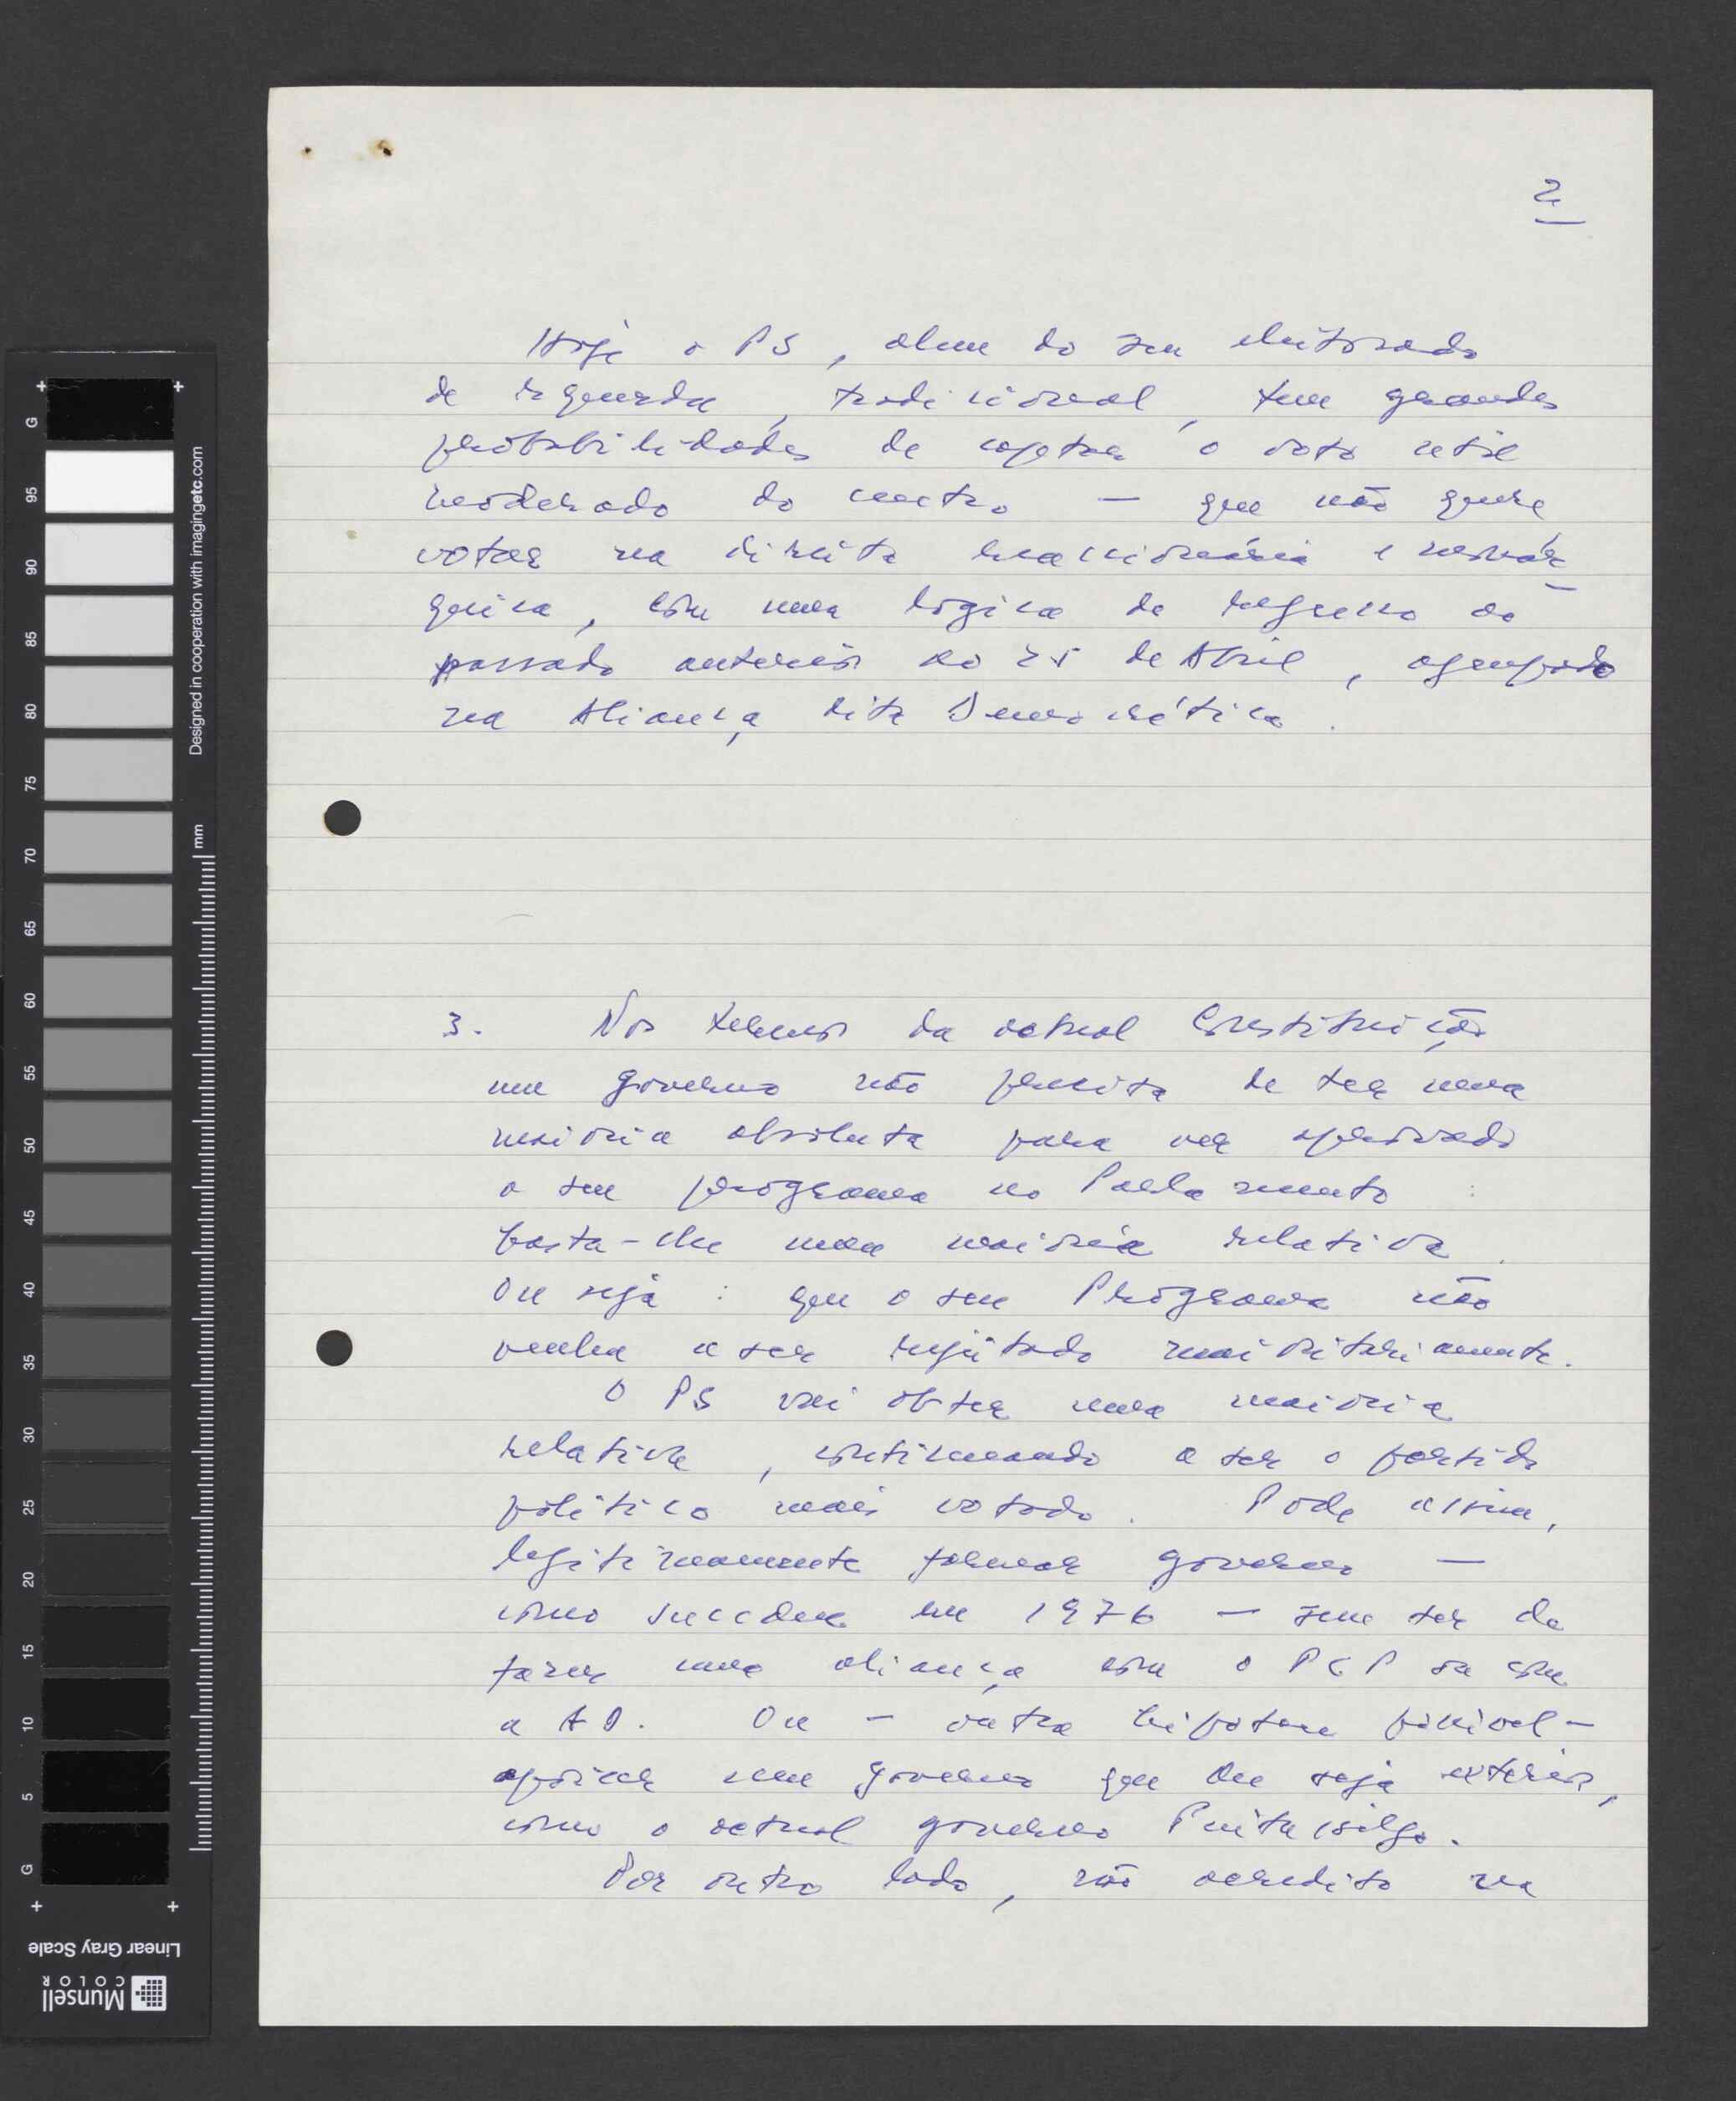 2
Hoje o PS, alem do seu eleitorado
de esquerda, tradicional, tem grandes
probabilidades de captar o voto util
moderado do centro — que não quere
votar na direita reaccionária e monár-
quica, com uma lógica de regresso ao
passado anterior ao 25 de Abril, agrupado
na Aliança dita Democrática.
3. Nos termos da actual Constituição
um governo não precisa de ter uma
maioria absoluta para ver aprovado
o seu programa no Parlamento :
basta-lhe uma maioria relativa.
Ou seja : que o seu Programa não
venha a ser rejeitado maioritariamente.
O PS vai obter uma maioria
relativa, continuando a ser o partido
político mais votado. Pode assim,
legitimamente formar governo —
como sucedeu em 1976 — sem ter de
fazer uma aliança com o PCP ou com
a AD. Ou — outra hipotese possivel —
apoiar um governo que lhe seja exterior,
como o actual governo Pintasilgo.
Por outro lado, não acredito na
Designed in cooperation with imagingetc.com
mm
G
95
90
85
80
75
70
65
60
55
50
45
40
35
30
25
20
15
10
5
G
Linear Gray Scale
Munsell
COLOR